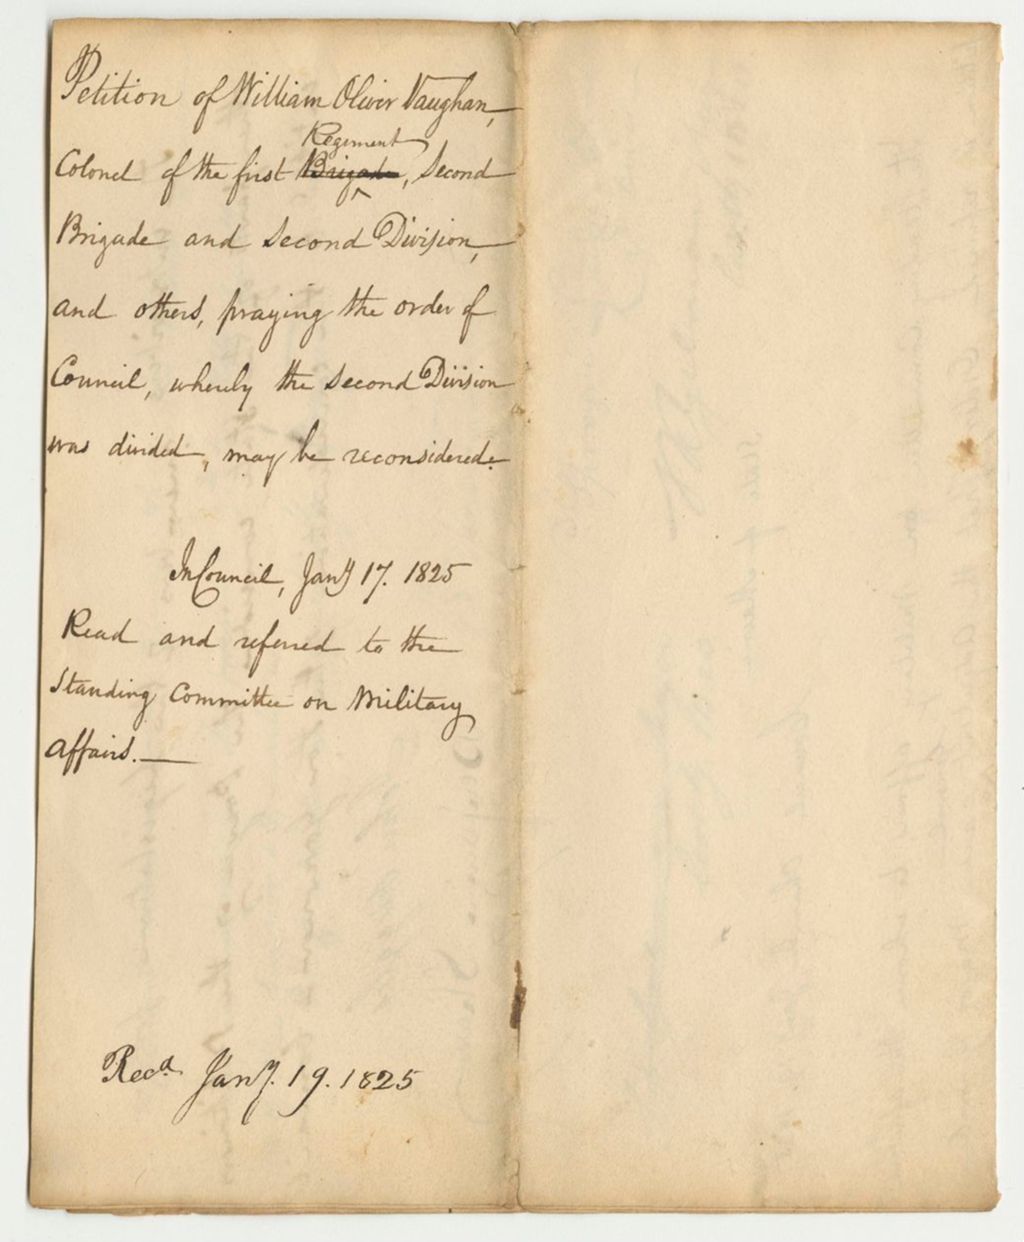 Petition of William Oliver Vaughan,
Regiment
Colonel of the first Brigade, Second
Brigade and Second Division,
and others, praying the order of
Council, whereby the Second Division
was divided, may be reconsidered.
In Council, Jany 17. 1825
Read and referred to the
Standing Committee on Military
Affairs.
Recd. Jany. 19. 1825